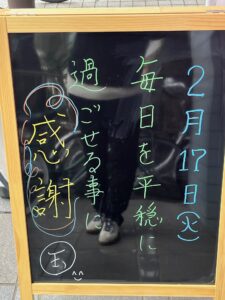 2月17日(火)
毎日を平穏に
過ごせる事に
感謝
玉
^^